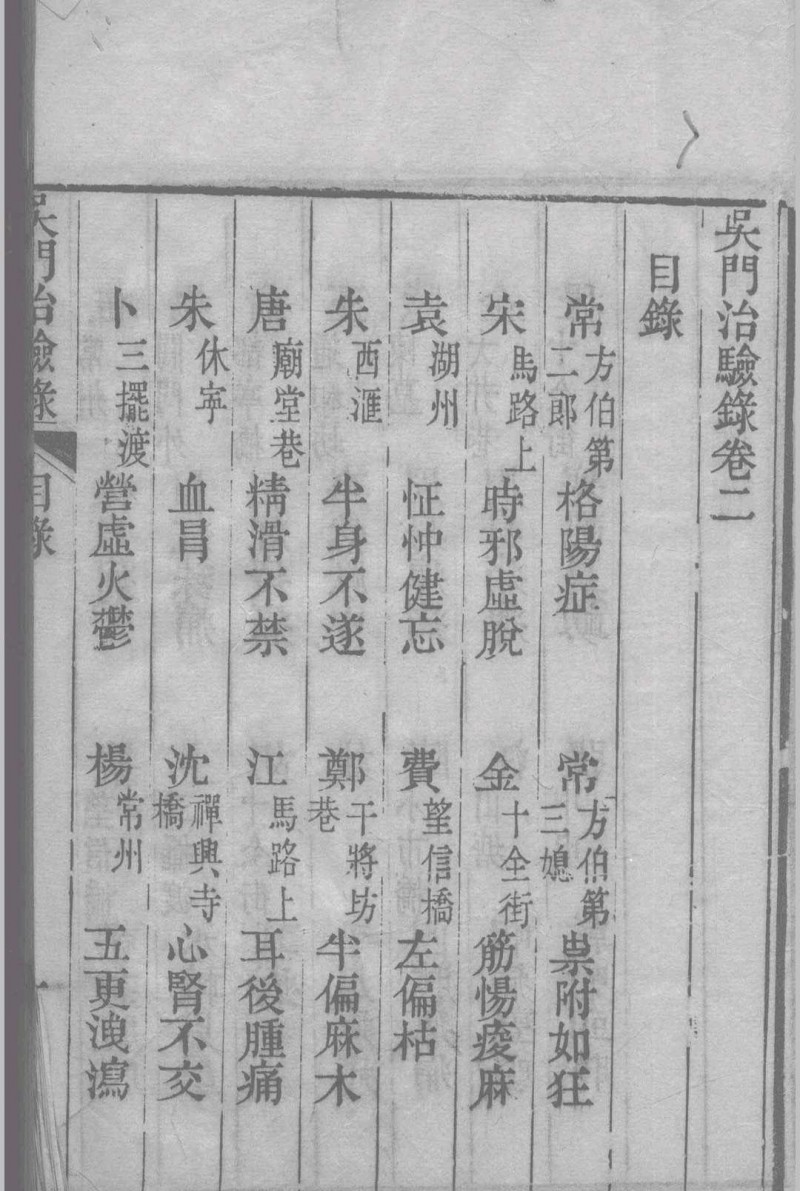 吳門治驗錄卷二
目錄
常 方伯第二郎 格陽症 常 方伯第三媳 祟附如狂
宋 馬路上 時邪虛脫 金 十全街 筋惕痠麻
袁 湖州 怔忡健忘 費 望信橋 左偏枯
朱 西滙 半身不遂 鄭 干將坊巷 半偏麻木
唐 廟堂巷 精滑不禁 江 馬路上 耳後腫痛
朱 休寧 血冒 沈 禪興寺橋 心腎不交
卜 三擺渡 營虛火鬱 楊 常州 五更洩瀉
吳門治驗錄 目錄 一